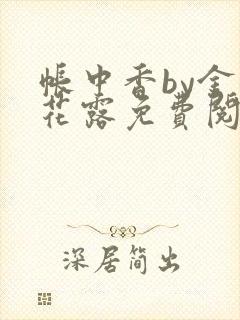 帳中香by金
花露免費閱
深居简出